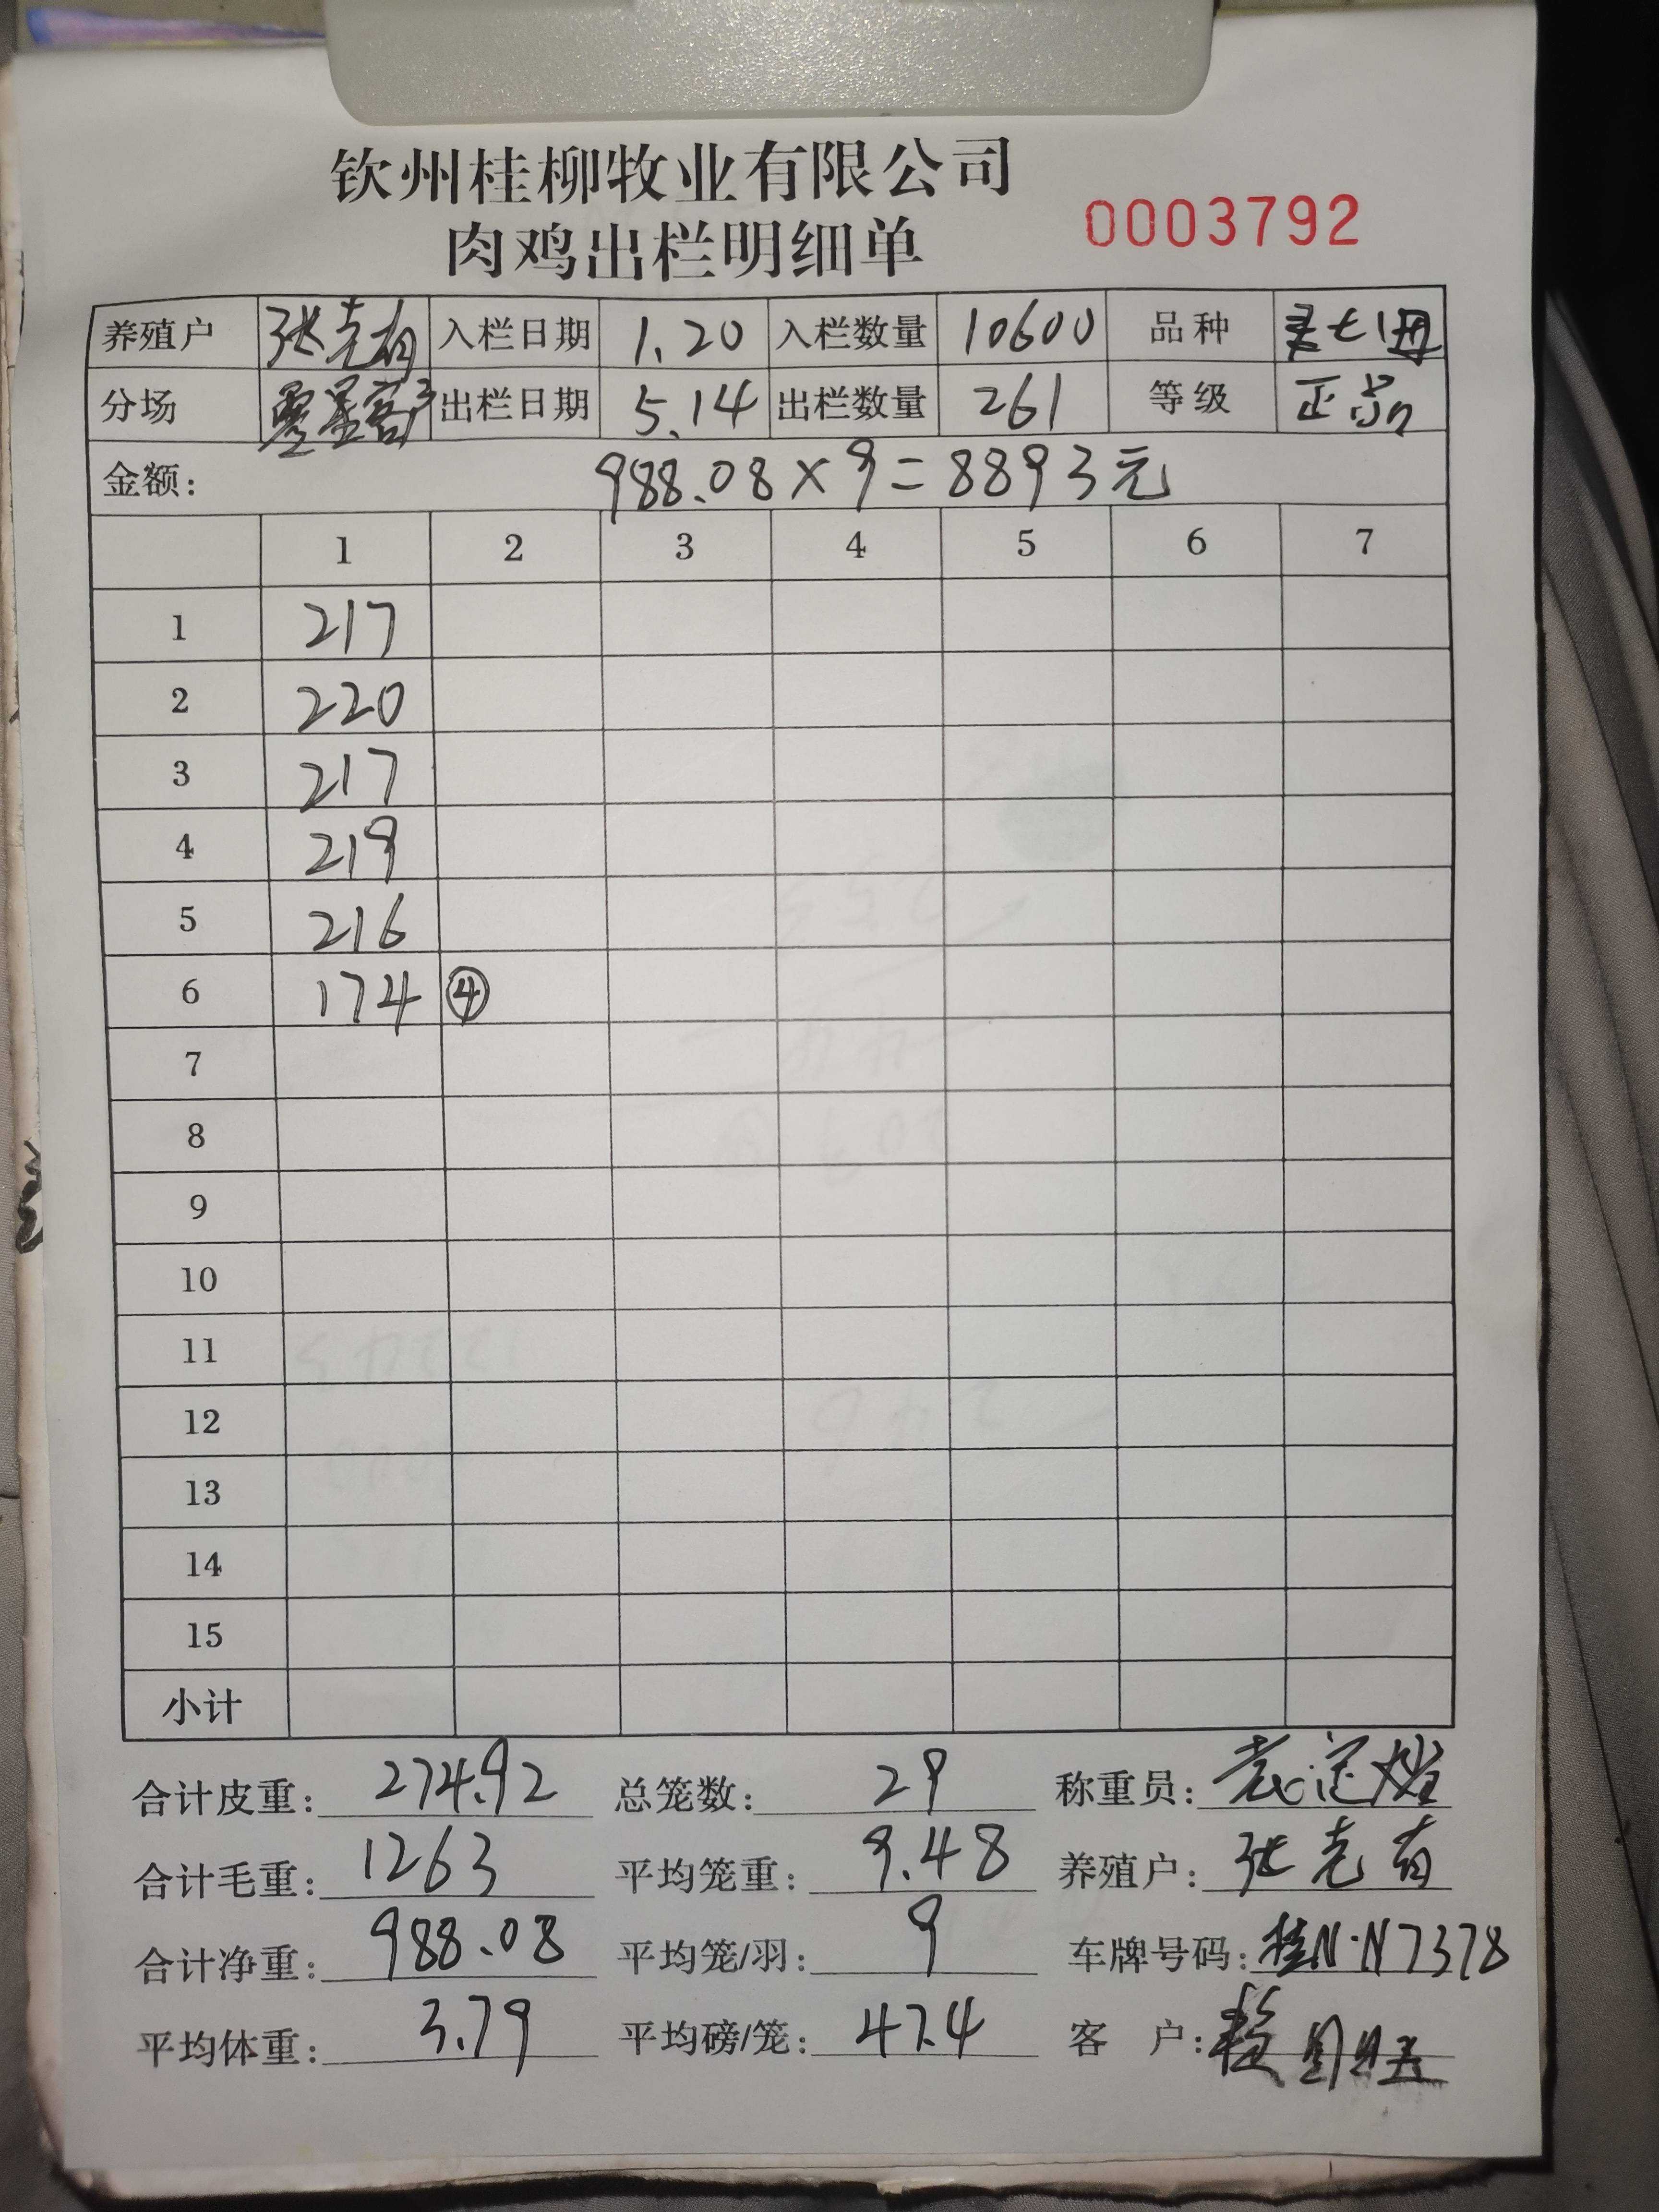 钦州桂柳牧业有限公司
肉鸡出栏明细单
0003792
养殖户 张克有 入栏日期 1.20 入栏数量 10600 品种
分场 零星客户 出栏日期 5.14 出栏数量 261 等级 正品
金额: 988.08×9=8893元
1 2 3 4 5 6 7
1 217
2 220
3 217
4 219
5 216
6 174 ④
7
8
9
10
11
12
13
14
15
小计
合计皮重: 274.92 总笼数: 29 称重员:
合计毛重: 1263 平均笼重: 9.48 养殖户: 张克有
合计净重: 988.08 平均笼/羽: 9 车牌号码: 桂N·N7378
平均体重: 3.79 平均磅/笼: 47.4 客 户: